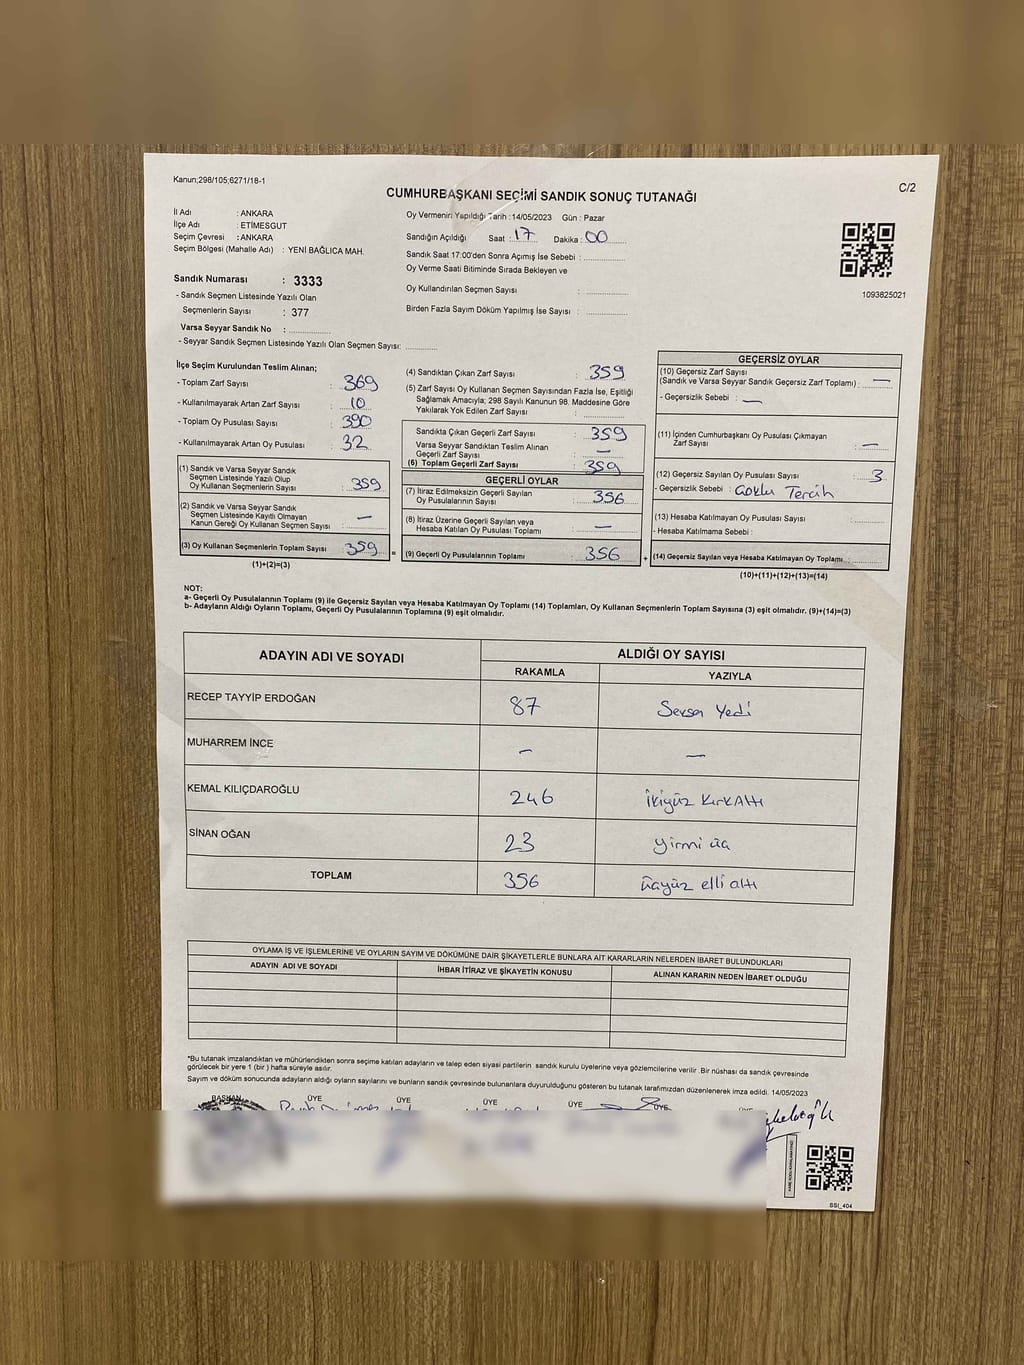 Kanun;298/105;6271/18-1
C/2
CUMHURBAŞKANI SEÇİMİ SANDIK SONUÇ TUTANAĞI
İl Adı : ANKARA
İlçe Adı : ETİMESGUT
Seçim Çevresi : ANKARA
Seçim Bölgesi (Mahalle Adı) : YENİ BAĞLICA MAH.
Sandık Numarası : 3333
- Sandık Seçmen Listesinde Yazılı Olan
Seçmenlerin Sayısı : 377
Varsa Seyyar Sandık No : ..............
- Seyyar Sandık Seçmen Listesinde Yazılı Olan Seçmen Sayısı: ...........
Oy Vermenin Yapıldığı Tarih :14/05/2023 Gün : Pazar
Sandığın Açıldığı Saat : 17 Dakika : 00
Sandık Saat 17:00'den Sonra Açımış İse Sebebi : ..............
Oy Verme Saati Bitiminde Sırada Bekleyen ve
Oy Kullandırılan Seçmen Sayısı : ..............
Birden Fazla Sayım Döküm Yapılmış İse Sayısı : ..............
1093825021
İlçe Seçim Kurulundan Teslim Alınan;
- Toplam Zarf Sayısı : 369
- Kullanılmayarak Artan Zarf Sayısı : 10
- Toplam Oy Pusulası Sayısı : 390
- Kullanılmayarak Artan Oy Pusulası : 32
(1) Sandık ve Varsa Seyyar Sandık
Seçmen Listesinde Yazılı Olup
Oy Kullanan Seçmenlerin Sayısı : 359
(2) Sandık ve Varsa Seyyar Sandık
Seçmen Listesinde Kayıtlı Olmayan
Kanun Gereği Oy Kullanan Seçmen Sayısı : —
(3) Oy Kullanan Seçmenlerin Toplam Sayısı : 359 =
(1)+(2)=(3)
(4) Sandıktan Çıkan Zarf Sayısı : 359
(5) Zarf Sayısı Oy Kullanan Seçmen Sayısından Fazla İse, Eşitliği
Sağlamak Amacıyla; 298 Sayılı Kanunun 98. Maddesine Göre
Yakılarak Yok Edilen Zarf Sayısı : ..............
Sandıkta Çıkan Geçerli Zarf Sayısı : 359
Varsa Seyyar Sandıktan Teslim Alınan
Geçerli Zarf Sayısı : —
(6) Toplam Geçerli Zarf Sayısı : 359
GEÇERLİ OYLAR
(7) İtiraz Edilmeksizin Geçerli Sayılan
Oy Pusulalarının Sayısı : 356
(8) İtiraz Üzerine Geçerli Sayılan veya
Hesaba Katılan Oy Pusulası Toplamı : —
(9) Geçerli Oy Pusulalarının Toplamı : 356 +
GEÇERSİZ OYLAR
(10) Geçersiz Zarf Sayısı
(Sandık ve Varsa Seyyar Sandık Geçersiz Zarf Toplamı) : —
- Geçersizlik Sebebi : —
(11) İçinden Cumhurbaşkanı Oy Pusulası Çıkmayan
Zarf Sayısı : —
(12) Geçersiz Sayılan Oy Pusulası Sayısı : 3
- Geçersizlik Sebebi : Çoklu Tercih
(13) Hesaba Katılmayan Oy Pusulası Sayısı : ..............
- Hesaba Katılmama Sebebi : ..............
(14) Geçersiz Sayılan veya Hesaba Katılmayan Oy Toplamı : ..............
(10)+(11)+(12)+(13)=(14)
NOT:
a- Geçerli Oy Pusulalarının Toplamı (9) ile Geçersiz Sayılan veya Hesaba Katılmayan Oy Toplamı (14) Toplamları, Oy Kullanan Seçmenlerin Toplam Sayısına (3) eşit olmalıdır. (9)+(14)=(3)
b- Adayların Aldığı Oyların Toplamı, Geçerli Oy Pusulalarının Toplamına (9) eşit olmalıdır.
ADAYIN ADI VE SOYADI ALDIĞI OY SAYISI
RAKAMLA YAZIYLA
RECEP TAYYİP ERDOĞAN 87 Seksen Yedi
MUHARREM İNCE – —
KEMAL KILIÇDAROĞLU 246 İkiyüz KırkAltı
SİNAN OĞAN 23 yirmi üç
TOPLAM 356 üçyüz elli altı
OYLAMA İŞ VE İŞLEMLERİNE VE OYLARIN SAYIM VE DÖKÜMÜNE DAİR ŞİKAYETLERLE BUNLARA AİT KARARLARIN NELERDEN İBARET BULUNDUKLARI
ADAYIN ADI VE SOYADI İHBAR İTİRAZ VE ŞİKAYETİN KONUSU ALINAN KARARIN NEDEN İBARET OLDUĞU
*Bu tutanak imzalandıktan ve mühürlendikten sonra seçime katılan adayların ve talep eden siyasi partilerin sandık kurulu üyelerine veya gözlemcilerine verilir .Bir nüshası da sandık çevresinde
görülecek bir yere 1 (bir ) hafta süreyle asılır.
Sayım ve döküm sonucunda adayların aldığı oyların sayılarını ve bunların sandık çevresinde bulunanlara duyurulduğunu gösteren bu tutanak tarafımızdan düzenlenerek imza edildi. 14/05/2023
BAŞKAN ÜYE ÜYE ÜYE ÜYE ÜYE
SSİ_404